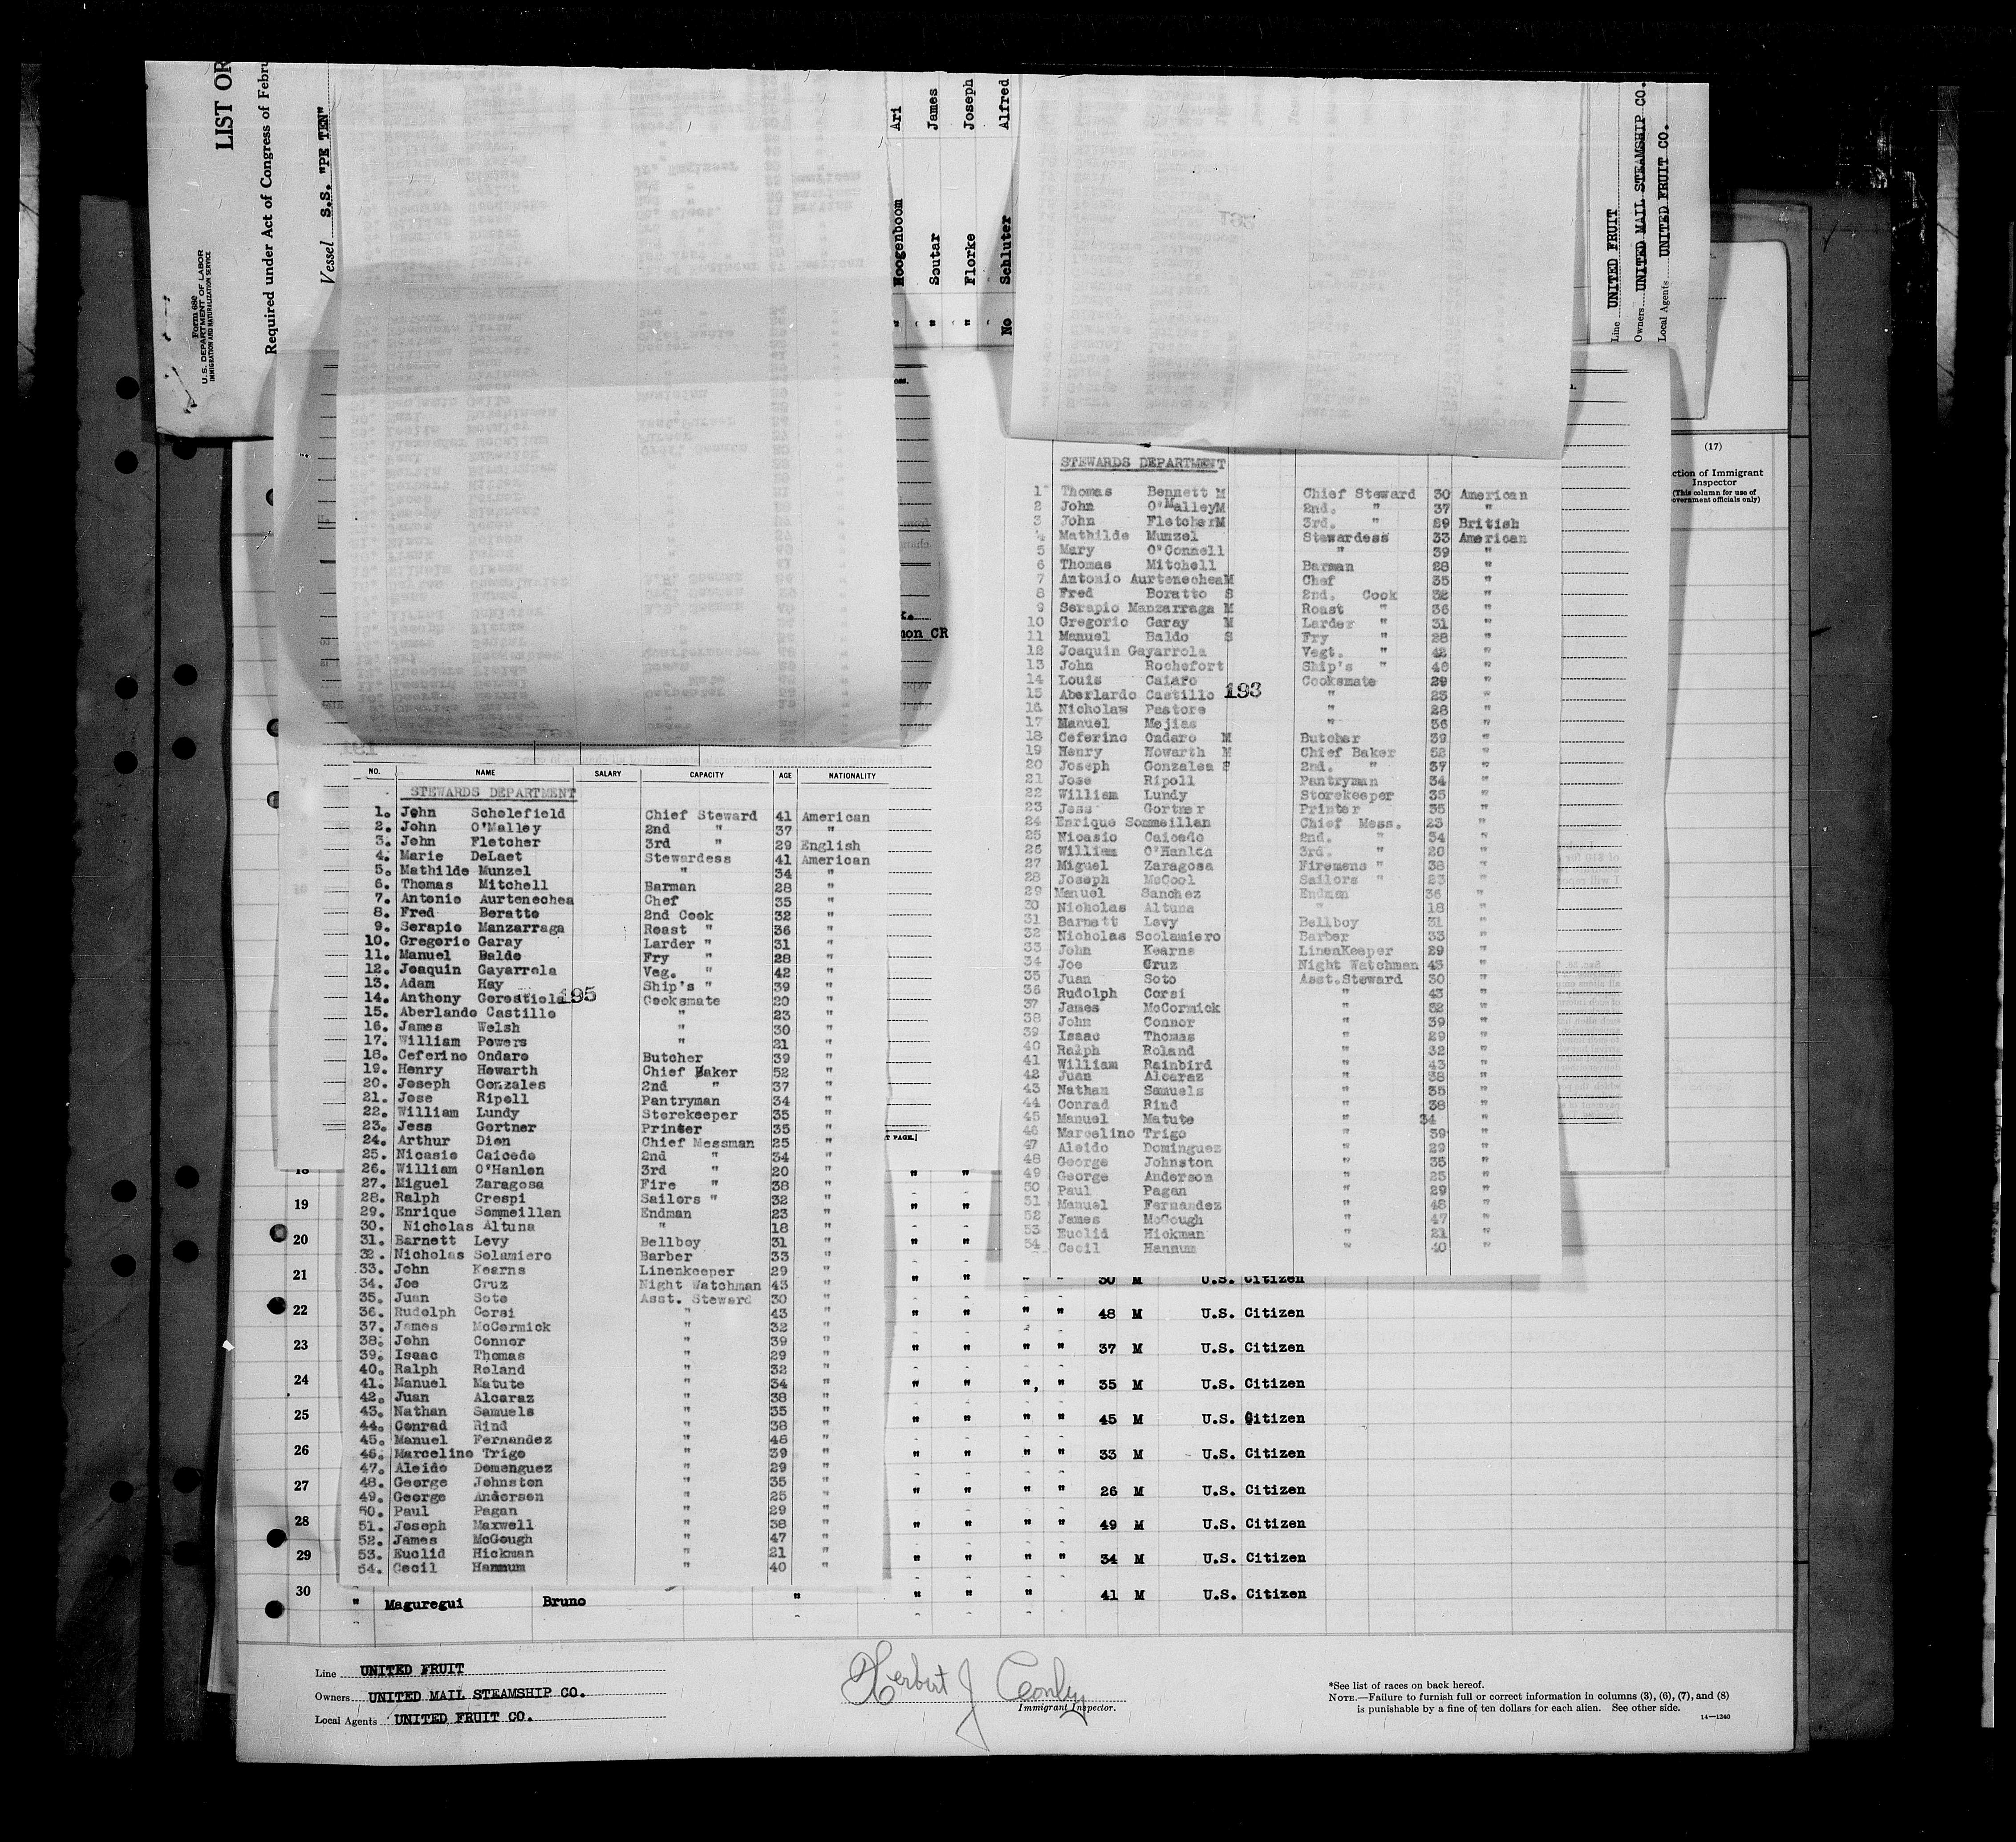 LIST OR
Required under Act of Congress of Febru
Vessel S.S. "PE TEN"
Form 680
U.S. DEPARTMENT OF LABOR
IMMIGRATION AND NATURALIZATION SERVICE
" Hoogenboom Ari
" Soutar James
" Florke Joseph
No Schluter Alfred
Line UNITED FRUIT
Owners UNITED MAIL STEAMSHIP CO.
Local Agents UNITED FRUIT CO.
(17)
ction of Immigrant
Inspector
(This column for use of
overnment officials only)
mon CR
STEWARDS DEPARTMENT
1 Thomas Bennett M Chief Steward 30 American
2 John O'Malley M 2nd. " 37 "
3 John Fletcher M 3rd. " 29 British
4 Mathilde Munzel Stewardess 33 American
5 Mary O'Connell " 39 "
6 Thomas Mitchell Barman 28 "
7 Antonio Aurtenechea M Chef 35 "
8 Fred Boratto S 2nd. Cook 32 "
9 Serapio Manzarraga M Roast " 36 "
10 Gregorio Garay M Larder " 31 "
11 Manuel Baldo S Fry " 28 "
12 Joaquin Gayarrola Vegt. " 42 "
13 John Rochefort Ship's " 40 "
14 Louis Caiafo Cooksmate 29 "
15 Aberlardo Castillo 193 " 23 "
16 Nicholaw Pastore " 28 "
17 Manuel Mejias " 36 "
18 Ceferino Ondaro M Butcher 39 "
19 Henry Howarth M Chief Baker 52 "
20 Joseph Gonzalea S 2nd. " 37 "
21 Jose Ripoll Pantryman 34 "
22 William Lundy Storekeeper 35 "
23 Jess Gortner Printer 35 "
24 Enrique Sommeillan Chief Mess. 23 "
25 Nicasio Caicedo 2nd. " 34 "
26 William O'Hanlen 3rd. " 20 "
27 Miguel Zaragosa Firemens " 38 "
28 Joseph McCool Sailors " 23 "
29 Manuel Sanchez Endman 36 "
30 Nicholas Altuna " 18 "
31 Barnett Levy Bellboy 31 "
32 Nicholas Scolamiero Barber 33 "
33 John Kearns LinenKeeper 29 "
34 Joe Cruz Night Watchman 43 "
35 Juan Soto Asst.Steward 30 "
36 Rudolph Corsi " 43 "
37 James McCormick " 32 "
38 John Connor " 39 "
39 Isaac Thomas " 29 "
40 Ralph Roland " 32 "
41 William Rainbird " 43 "
42 Juan Alcaraz " 38 "
43 Nathan Samuels " 35 "
44 Conrad Rind " 38 "
45 Manuel Matute " 34 "
46 Marcelino Trigo " 39 "
47 Aleido Dominguez " 29 "
48 George Johnston " 35 "
49 George Anderson " 25 "
50 Paul Pagan " 29 "
51 Manuel Fernandez " 48 "
52 James McGough " 47 "
53 Euclid Hickman " 21 "
54 Cecil Hannum " 40 "
NO. NAME SALARY CAPACITY AGE NATIONALITY
STEWARDS DEPARTMENT
1. John Scholefield Chief Steward 41 American
2. John O'Malley 2nd " 37 "
3. John Fletcher 3rd " 29 English
4. Marie DeLaet Stewardess 41 American
5. Mathilde Munzel " 34 "
6. Thomas Mitchell Barman 28 "
7. Antonio Aurtenechea Chef 35 "
8. Fred Beratto 2nd Cook 32 "
9. Serapio Manzarraga Roast " 36 "
10. Gregorio Garay Larder " 31 "
11. Manuel Baldo Fry " 28 "
12. Joaquin Gayarrola Veg. " 42 "
13. Adam Hay Ship's " 39 "
14. Anthony Gorostiola 195 Cooksmate 20 "
15. Aberlando Castillo " 23 "
16. James Welsh " 30 "
17. William Powers " 21 "
18. Ceferino Ondaro Butcher 39 "
19. Henry Howarth Chief Baker 52 "
20. Joseph Gonzales 2nd " 37 "
21. Jose Ripoll Pantryman 34 "
22. William Lundy Storekeeper 35 "
23. Jess Gortner Printer 35 "
24. Arthur Dion Chief Messman 25 "
25. Nicasio Caicedo 2nd " 34 "
26. William O'Hanlen 3rd " 20 "
27. Miguel Zaragosa Fire " 38 "
28. Ralph Crespi Sailors " 32 "
29. Enrique Sommeillan Endman 23 "
30. Nicholas Altuna " 18 "
31. Barnett Levy Bellboy 31 "
32. Nicholas Solamiero Barber 33 "
33. John Kearns Linenkeeper 29 "
34. Joe Cruz Night Watchman 43 "
35. Juan Soto Asst. Steward 30 "
36. Rudolph Corsi " 43 "
37. James McCormick " 32 "
38. John Connor " 39 "
39. Isaac Thomas " 29 "
40. Ralph Roland " 32 "
41. Manuel Matute " 34 "
42. Juan Alcaraz " 38 "
43. Nathan Samuels " 35 "
44. Conrad Rind " 38 "
45. Manuel Fernandez " 48 "
46. Marcelino Trigo " 39 "
47. Aleido Domenguez " 29 "
48. George Johnston " 35 "
49. George Anderson " 25 "
50. Paul Pagan " 29 "
51. Joseph Maxwell " 38 "
52. James McGough " 47 "
53. Euclid Hickman " 21 "
54. Cecil Hannum " 40 "
T PAGE.]
18 " "
19 " "
20 " "
21 " " " " 30 M U.S. Citizen
22 " " " " 48 M U.S. Citizen
23 " " " " 37 M U.S. Citizen
24 " " " " 35 M U.S. Citizen
25 " " " " 45 M U.S. Citizen
26 " " " " 33 M U.S. Citizen
27 " " " " 26 M U.S. Citizen
28 " " " " 49 M U.S. Citizen
29 " " " " 34 M U.S. Citizen
30 " Maguregui Bruno " " " " 41 M U.S. Citizen
Line UNITED FRUIT
Owners UNITED MAIL STEAMSHIP CO.
Local Agents UNITED FRUIT CO.
Herbert J Conley
Immigrant Inspector.
*See list of races on back hereof.
NOTE.—Failure to furnish full or correct information in columns (3), (6), (7), and (8)
is punishable by a fine of ten dollars for each alien. See other side.
14—1240